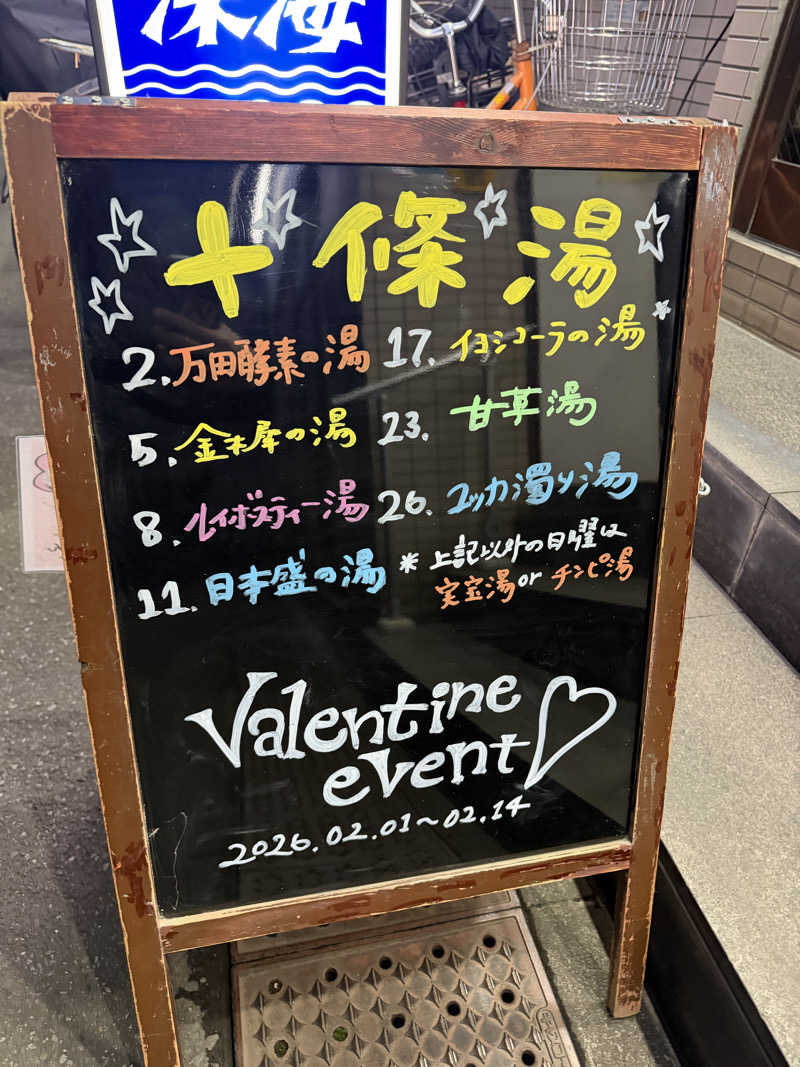 深海
十條湯
2. 万田酵素の湯
5. 金木犀の湯
8. ルイボスティー湯
11. 日本盛の湯
17. イヨシコーラの湯
23. 甘草湯
26. ユッカ濁り湯
* 上記以外の日曜は
実宝湯 or チンピ湯
Valentine
event
2026.02.01〜02.14